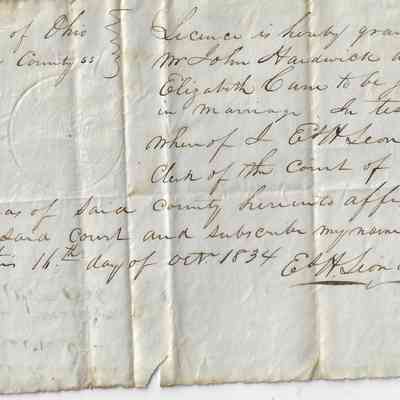 of Ohio
County ss
Licence is hereby gran
Mr John Hardwick a
Elizabeth Cum to be j
in marriage. In tes
whereof I Eb H Leon
clerk of the Court of
as of said county hereunto affi
said Court and subscribe my name
this 16.th day of Octr. 1834
Eb H Leon